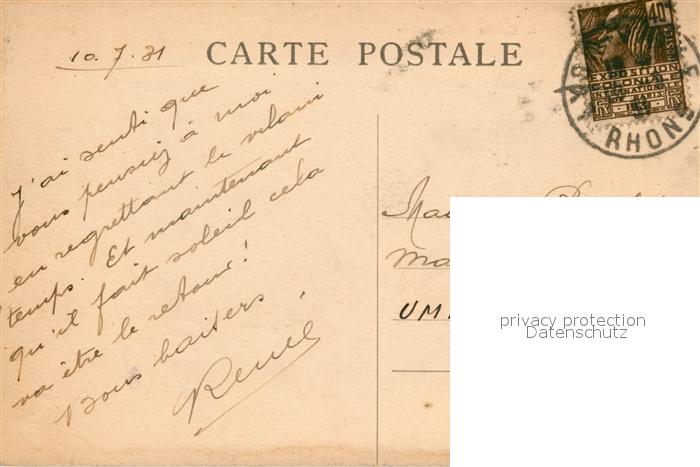 10.7.31
CARTE POSTALE
40
EXPOSITION
COLONIALE
RHONE
J'ai senti que
vous pensiez à moi
en regrettant le vilain
temps. Et maintenant
qu'il fait soleil cela
va être le retour!
Bons baisers,
Renée
Ma
UM
privacy protection
Datenschutz